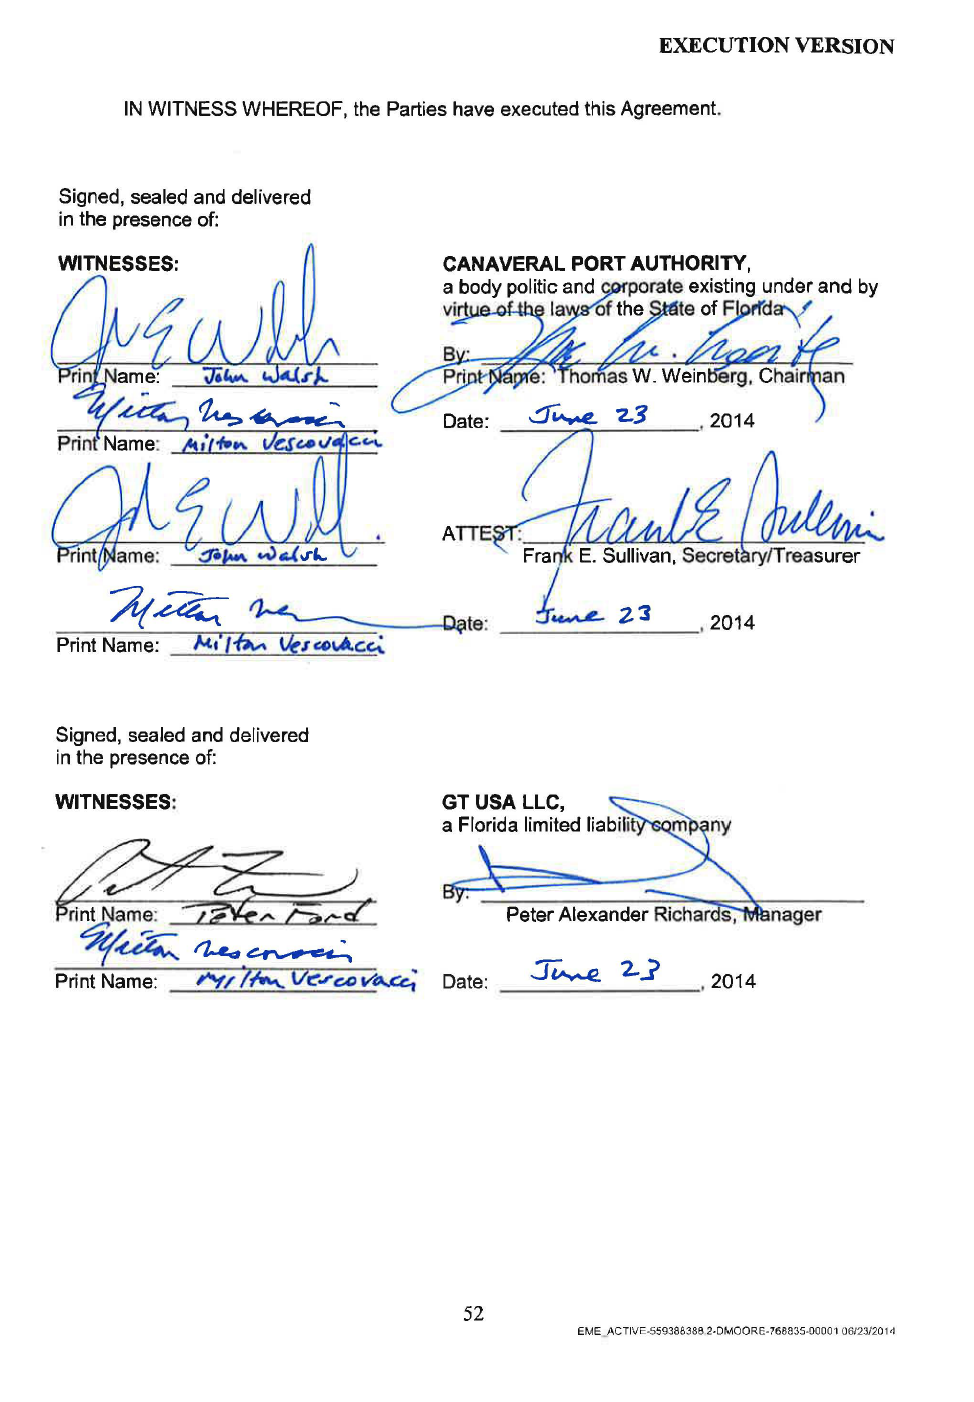 EXECUTION VERSION
IN WITNESS WHEREOF, the Parties have executed this Agreement.
Signed, sealed and delivered
in the presence of:
WITNESSES:
Print Name: John Walsh
Print Name: Milton Vescovacci
Print Name: John Walsh
Print Name: Milton Vescovacci
CANAVERAL PORT AUTHORITY,
a body politic and corporate existing under and by
virtue of the laws of the State of Florida
By:
Print Name: Thomas W. Weinberg, Chairman
Date: June 23, 2014
ATTEST: Frank E Sullivan
Frank E. Sullivan, Secretary/Treasurer
Date: June 23, 2014
Signed, sealed and delivered
in the presence of:
WITNESSES:
Print Name: Peter Ford
Print Name: Milton Vescovacci
GT USA LLC,
a Florida limited liability company
By:
Peter Alexander Richards, Manager
Date: June 23, 2014
52
EME_ACTIVE-559388388.2-DMOORE-768835-00001 06/23/2014